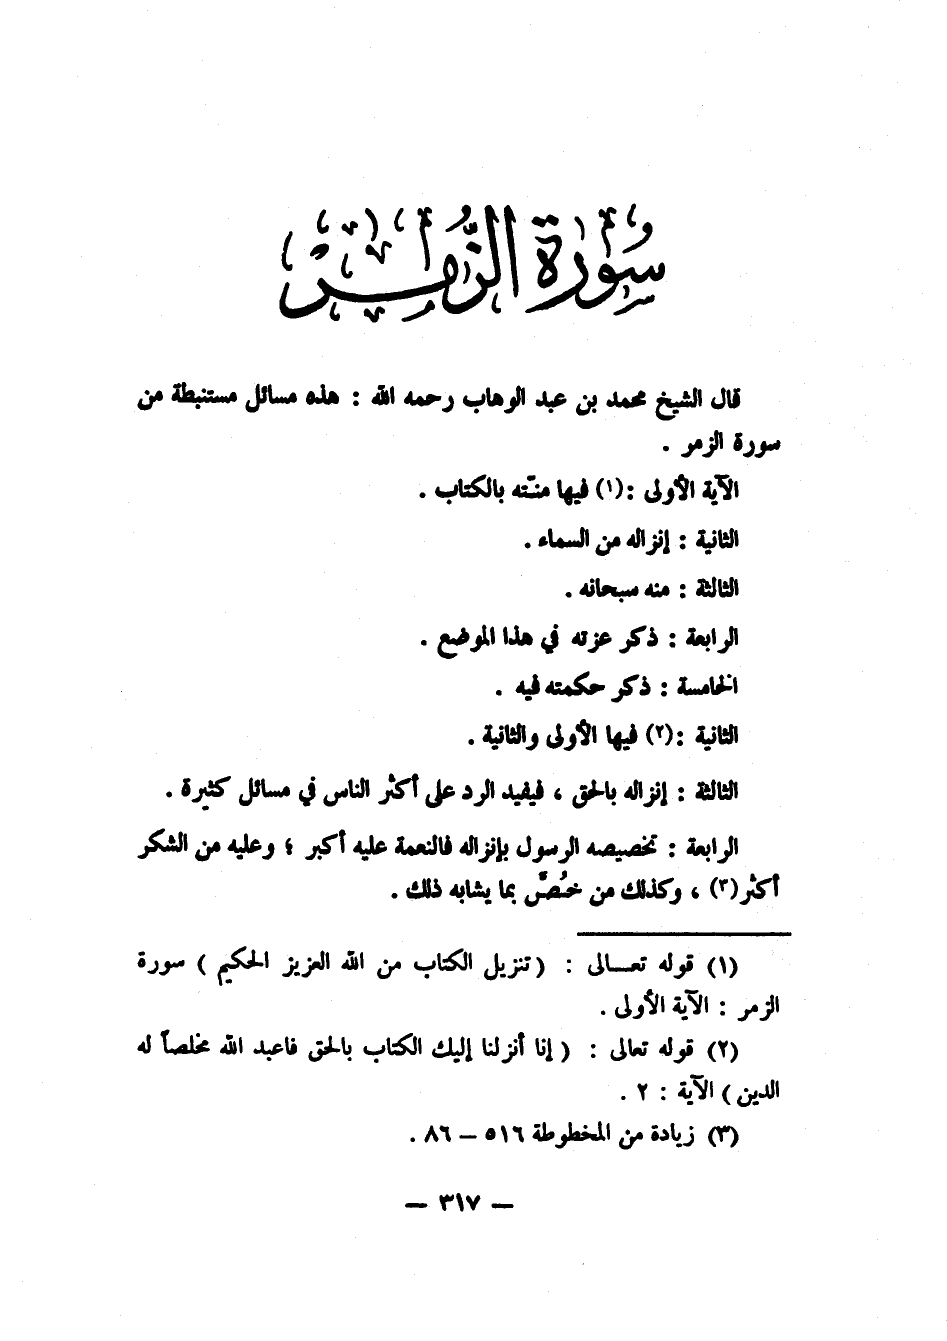 سُورَة الزُّمَر
قال الشيخ محمد بن عبد الوهاب رحمه الله : هذه مسائل مستنبطة من
سورة الزمر .
الآية الأولى :(١) فيها منّته بالكتاب .
الثانية : إنزاله من السماء .
الثالثة : منه سبحانه .
الرابعة : ذكر عزته في هذا الموضع .
الخامسة : ذكر حكمته فيه .
الثانية :(٢) فيها الأولى والثانية .
الثالثة : إنزاله بالحق ، فيفيد الرد على أكثر الناس في مسائل كثيرة .
الرابعة : تخصيصه الرسول بإنزاله فالنعمة عليه أكبر ؛ وعليه من الشكر
أكثر(٣) ، وكذلك من خُصَّ بما يشابه ذلك .
(١) قوله تعــالى : ( تنزيل الكتاب من الله العزيز الحكيم ) سورة
الزمر : الآية الأولى .
(٢) قوله تعالى : ( إنا أنزلنا إليك الكتاب بالحق فاعبد الله مخلصاً له
الدين ) الآية : ٢ .
(٣) زيادة من المخطوطة ٥١٦ – ٨٦ .
— ٣١٧ —